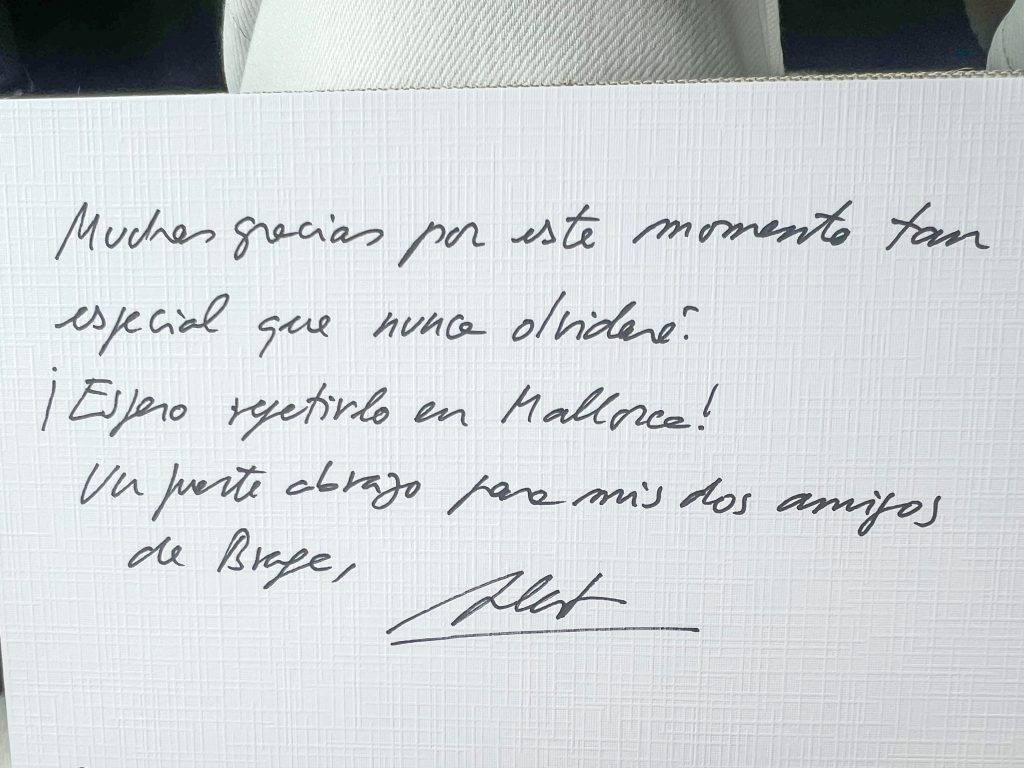 Muchas gracias por este momento tan
especial que nunca olvidaré.
¡Espero repetirlo en Mallorca!
Un fuerte abrazo para mis dos amigos
de Brage,